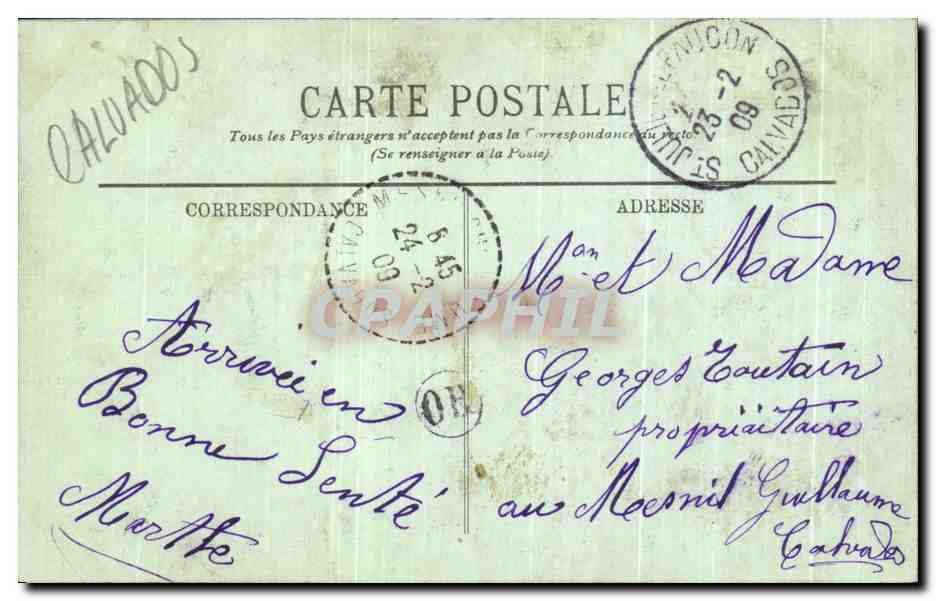 CALVADOS
CARTE POSTALE
Tous les Pays étrangers n'acceptent pas la Correspondance au recto
(Se renseigner à la Poste).
CORRESPONDANCE
ADRESSE
23 -2
09
CALVADOS
6 45
24 -2
09
OR
CPAPHIL
Arrivée en
Bonne Senté
Marthe
Man et Madame
Georges Toutain
propriaitaire
au Mesnil Guillaume
Calvados